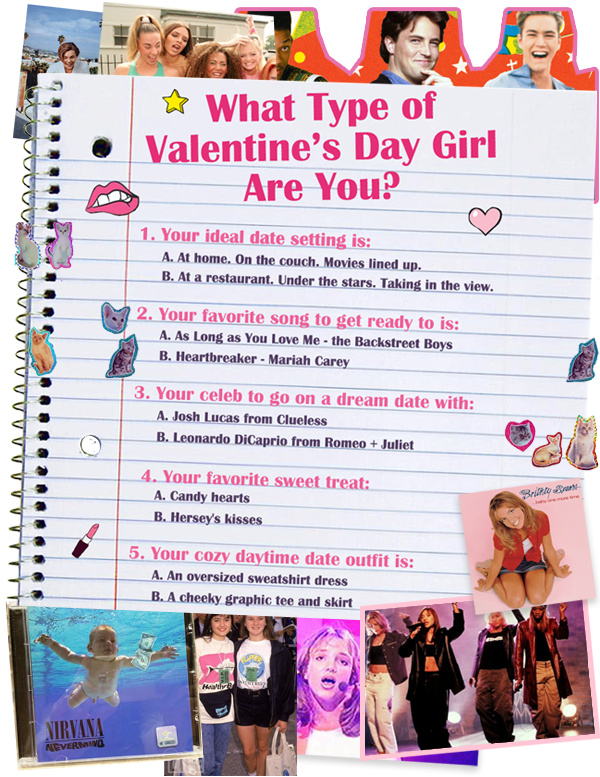 What Type of
Valentine's Day Girl
Are You?
1. Your ideal date setting is:
A. At home. On the couch. Movies lined up.
B. At a restaurant. Under the stars. Taking in the view.
2. Your favorite song to get ready to is:
A. As Long as You Love Me - the Backstreet Boys
B. Heartbreaker - Mariah Carey
3. Your celeb to go on a dream date with:
A. Josh Lucas from Clueless
B. Leonardo DiCaprio from Romeo + Juliet
4. Your favorite sweet treat:
A. Candy hearts
B. Hersey's kisses
Britney Spears
...baby one more time
5. Your cozy daytime date outfit is:
A. An oversized sweatshirt dress
B. A cheeky graphic tee and skirt
NIRVANA
NEVERMIND